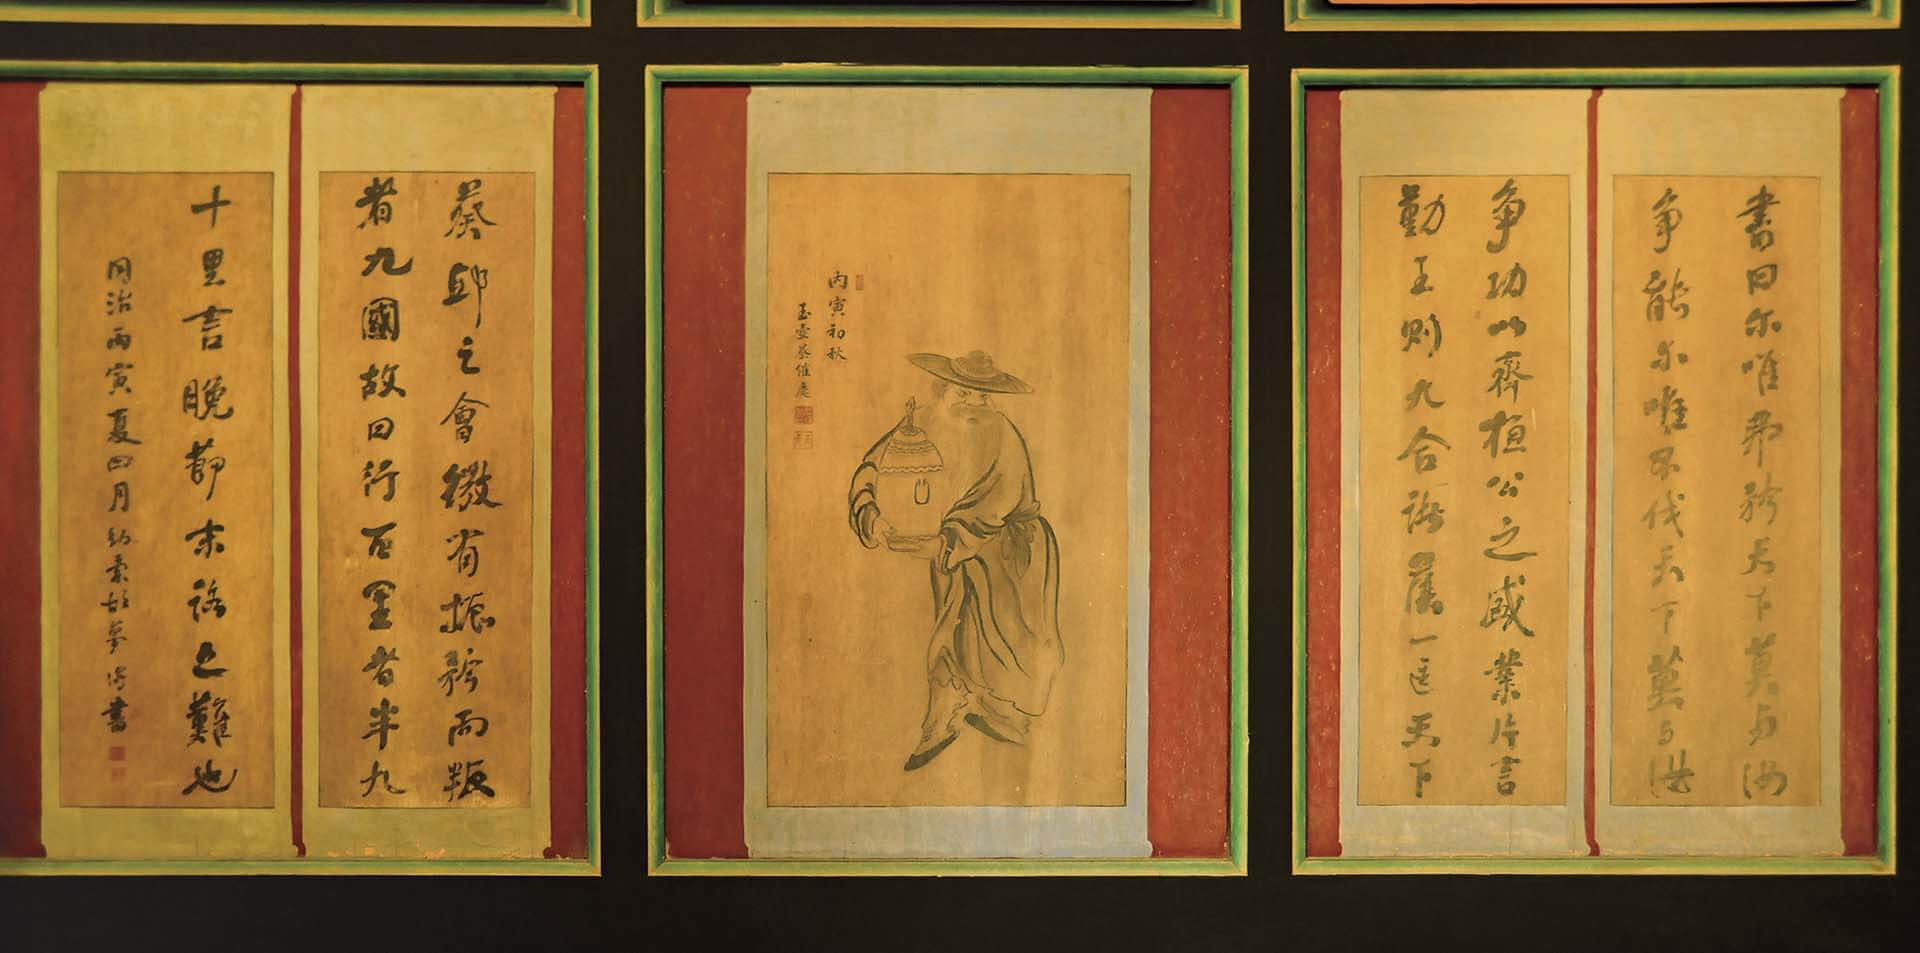 書曰尔唯弗矜天下莫与汝
争能尔唯不伐天下莫与汝
争功以齊桓公之盛業片言
勤王則九合諸侯一匡天下
丙寅初秋
玉壺蔡催慶
葵邱之會微有振矜而叛
者九國故曰行百里者半九
十里言晚節末路之難也
同治丙寅夏四月
書